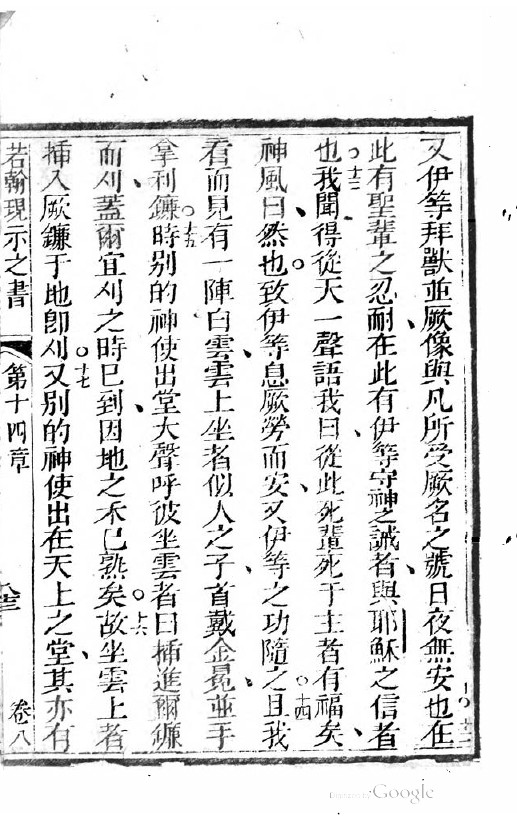 又伊等拜獸並厥像與凡所受厥名之號日夜無安也在
十二
此有聖輩之忍耐在此有伊等守神之誡者與耶穌之信者
也○十三我聞得從天一聲語我曰從此死輩死于主者有福矣
神風曰然也致伊等息厥勞而安又伊等之功隨之且我○十四
看而見有一陣白雲雲上坐者似人之子首戴金冕並手
拿利鐮○十五時別的神使出堂大聲呼彼坐雲者曰插進爾鐮
而刈蓋爾宜刈之時已到因地之禾已熟矣○十六故坐雲上者
插入厥鐮于地卽刈○十七又別的神使出在天上之堂其亦有
若翰現示之書 第十四章 卷八
Google